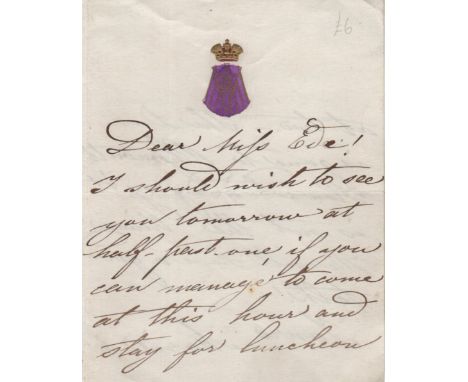 £6
Dear Miss Ede!
I should wish to see
you tomorrow at
half-past-one, if you
can manage to come
at this hour and
stay for luncheon